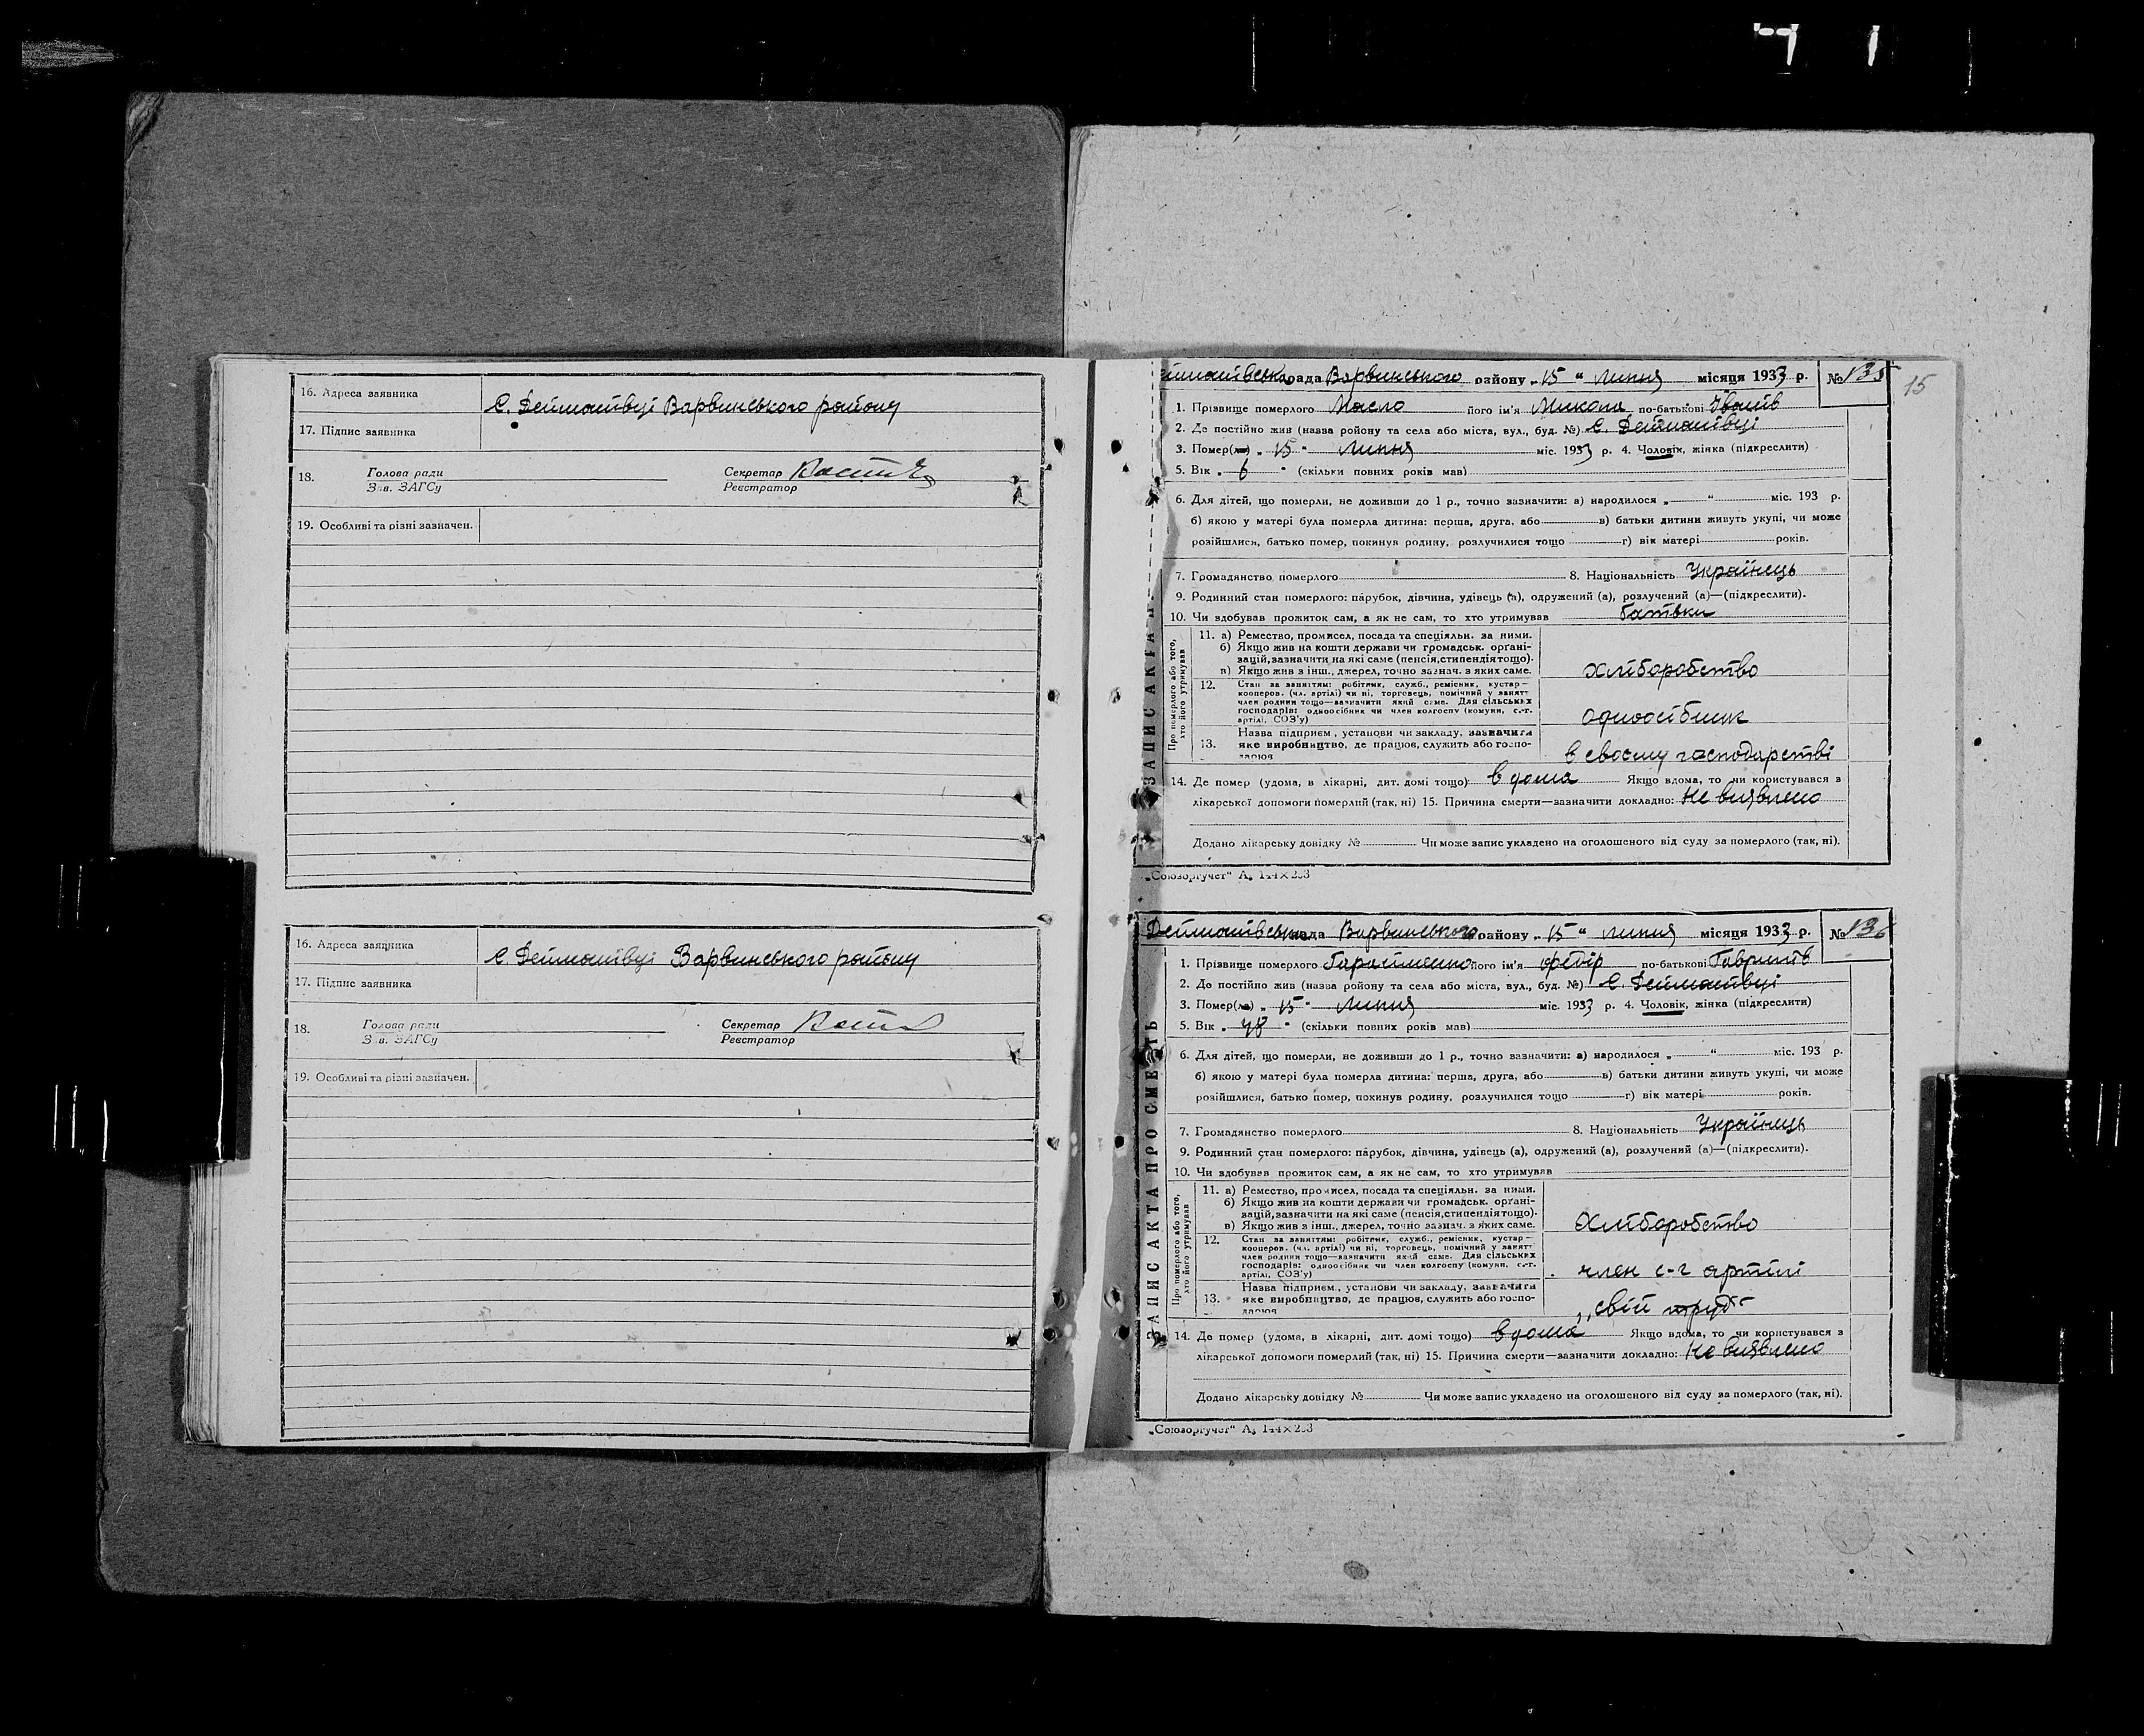 16. Адреса заявника
с. Дейманівці Варвинського району
17. Підпис заявника
18. Голова ради
Зав. ЗАГСу
Секретар
Реєстратор
19. Особливі та різні зазначен.
16. Адреса заявника
с. Дейманівці Варвинського району
17. Підпис заявника
18. Голова ради
Зав. ЗАГСу
Секретар
Реєстратор
19. Особливі та різні зазначен.
15
ейманівська рада Варвинського району „15“ липня місяця 1933 р. № 135
ЗАПИС АКТА
1. Прізвище померлого Масло його ім'я Микола по-батькові Іванів
2. Де постійно жив (назва району та села або міста, вул., буд. №) с. Дейманівці
3. Помер(ла) „15“ липня міс. 1933 р. 4. Чоловік, жінка (підкреслити)
5. Вік „6“ (скільки повних років мав)
6. Для дітей, що померли, не доживши до 1 р., точно зазначити: а) народилося „ “ міс. 193 р.
б) якою у матері була померла дитина: перша, друга, або в) батьки дитини живуть укупі, чи може
розійшлися, батько помер, покинув родину, розлучилися тощо г) вік матері років.
7. Громадянство померлого 8. Національність Українець
9. Родинний стан померлого: парубок, дівчина, удівець (а), одружений (а), розлучений (а)—(підкреслити).
10. Чи здобував прожиток сам, а як не сам, то хто утримував батьки
Про померлого або того,
хто його утримував
11. а) Ремество, промисел, посада та спеціяльн. за ними.
б) Якщо жив на кошти держави чи громадськ. органі-
зацій, зазначити на які саме (пенсія, стипендія тощо).
в) Якщо жив з інш., джерел, точно зазнач. з яких саме.
хліборобство
12. Стан за заняттям: робітник, служб., ремісник, кустар—
кооперов. (чл. артілі) чи ні, торговець, помічний у занятт
член родини тощо—зазначити який саме. Для сільських
господарів: одноосібник чи член колгоспу (комуни, с.-г.
артілі, СОЗ'у)
одноосібник
13. Назва підприєм., установи чи закладу, зазначити
яке виробництво, де працює, служить або госпо-
дарює
в своєму господарстві
14. Де помер (удома, в лікарні, дит. домі тощо) вдома Якщо вдома, то чи користувався з
лікарської допомоги померлий (так, ні) 15. Причина смерти—зазначити докладно: Не виявлено
Додано лікарську довідку № Чи може запис укладено на оголошеного від суду за померлого (так, ні).
„Союзоргучет“ А₅ 144×203
Дейманівська рада Варвинського району „15“ липня місяця 1933 р. № 136
ЗАПИС АКТА ПРО СМЕРТЬ
1. Прізвище померлого його ім'я Федір по-батькові Гаврилів
2. Де постійно жив (назва району та села або міста, вул., буд. №) с. Дейманівці
3. Помер(ла) „15“ липня міс. 1933 р. 4. Чоловік, жінка (підкреслити)
5. Вік „48“ (скільки повних років мав)
6. Для дітей, що померли, не доживши до 1 р., точно зазначити: а) народилося „ “ міс. 193 р.
б) якою у матері була померла дитина: перша, друга, або в) батьки дитини живуть укупі, чи може
розійшлися, батько помер, покинув родину, розлучилися тощо г) вік матері років.
7. Громадянство померлого 8. Національність Українець
9. Родинний стан померлого: парубок, дівчина, удівець (а), одружений (а), розлучений (а)—(підкреслити).
10. Чи здобував прожиток сам, а як не сам, то хто утримував
Про померлого або того,
хто його утримував
11. а) Ремество, промисел, посада та спеціяльн. за ними.
б) Якщо жив на кошти держави чи громадськ. органі-
зацій, зазначити на які саме (пенсія, стипендія тощо).
в) Якщо жив з інш., джерел, точно зазнач. з яких саме.
Хліборобство
12. Стан за заняттям: робітник, служб., ремісник, кустар—
кооперов. (чл. артілі) чи ні, торговець, помічний у занятт
член родини тощо—зазначити який саме. Для сільських
господарів: одноосібник чи член колгоспу (комуни, с.-г.
артілі, СОЗ'у)
член с-г артілі
13. Назва підприєм., установи чи закладу, зазначити
яке виробництво, де працює, служить або госпо-
дарює
„свій труд“
14. Де помер (удома, в лікарні, дит. домі тощо) вдома Якщо вдома, то чи користувався з
лікарської допомоги померлий (так, ні) 15. Причина смерти—зазначити докладно: Не виявлено
Додано лікарську довідку № Чи може запис укладено на оголошеного від суду за померлого (так, ні).
„Союзоргучет“ А₅ 144×203